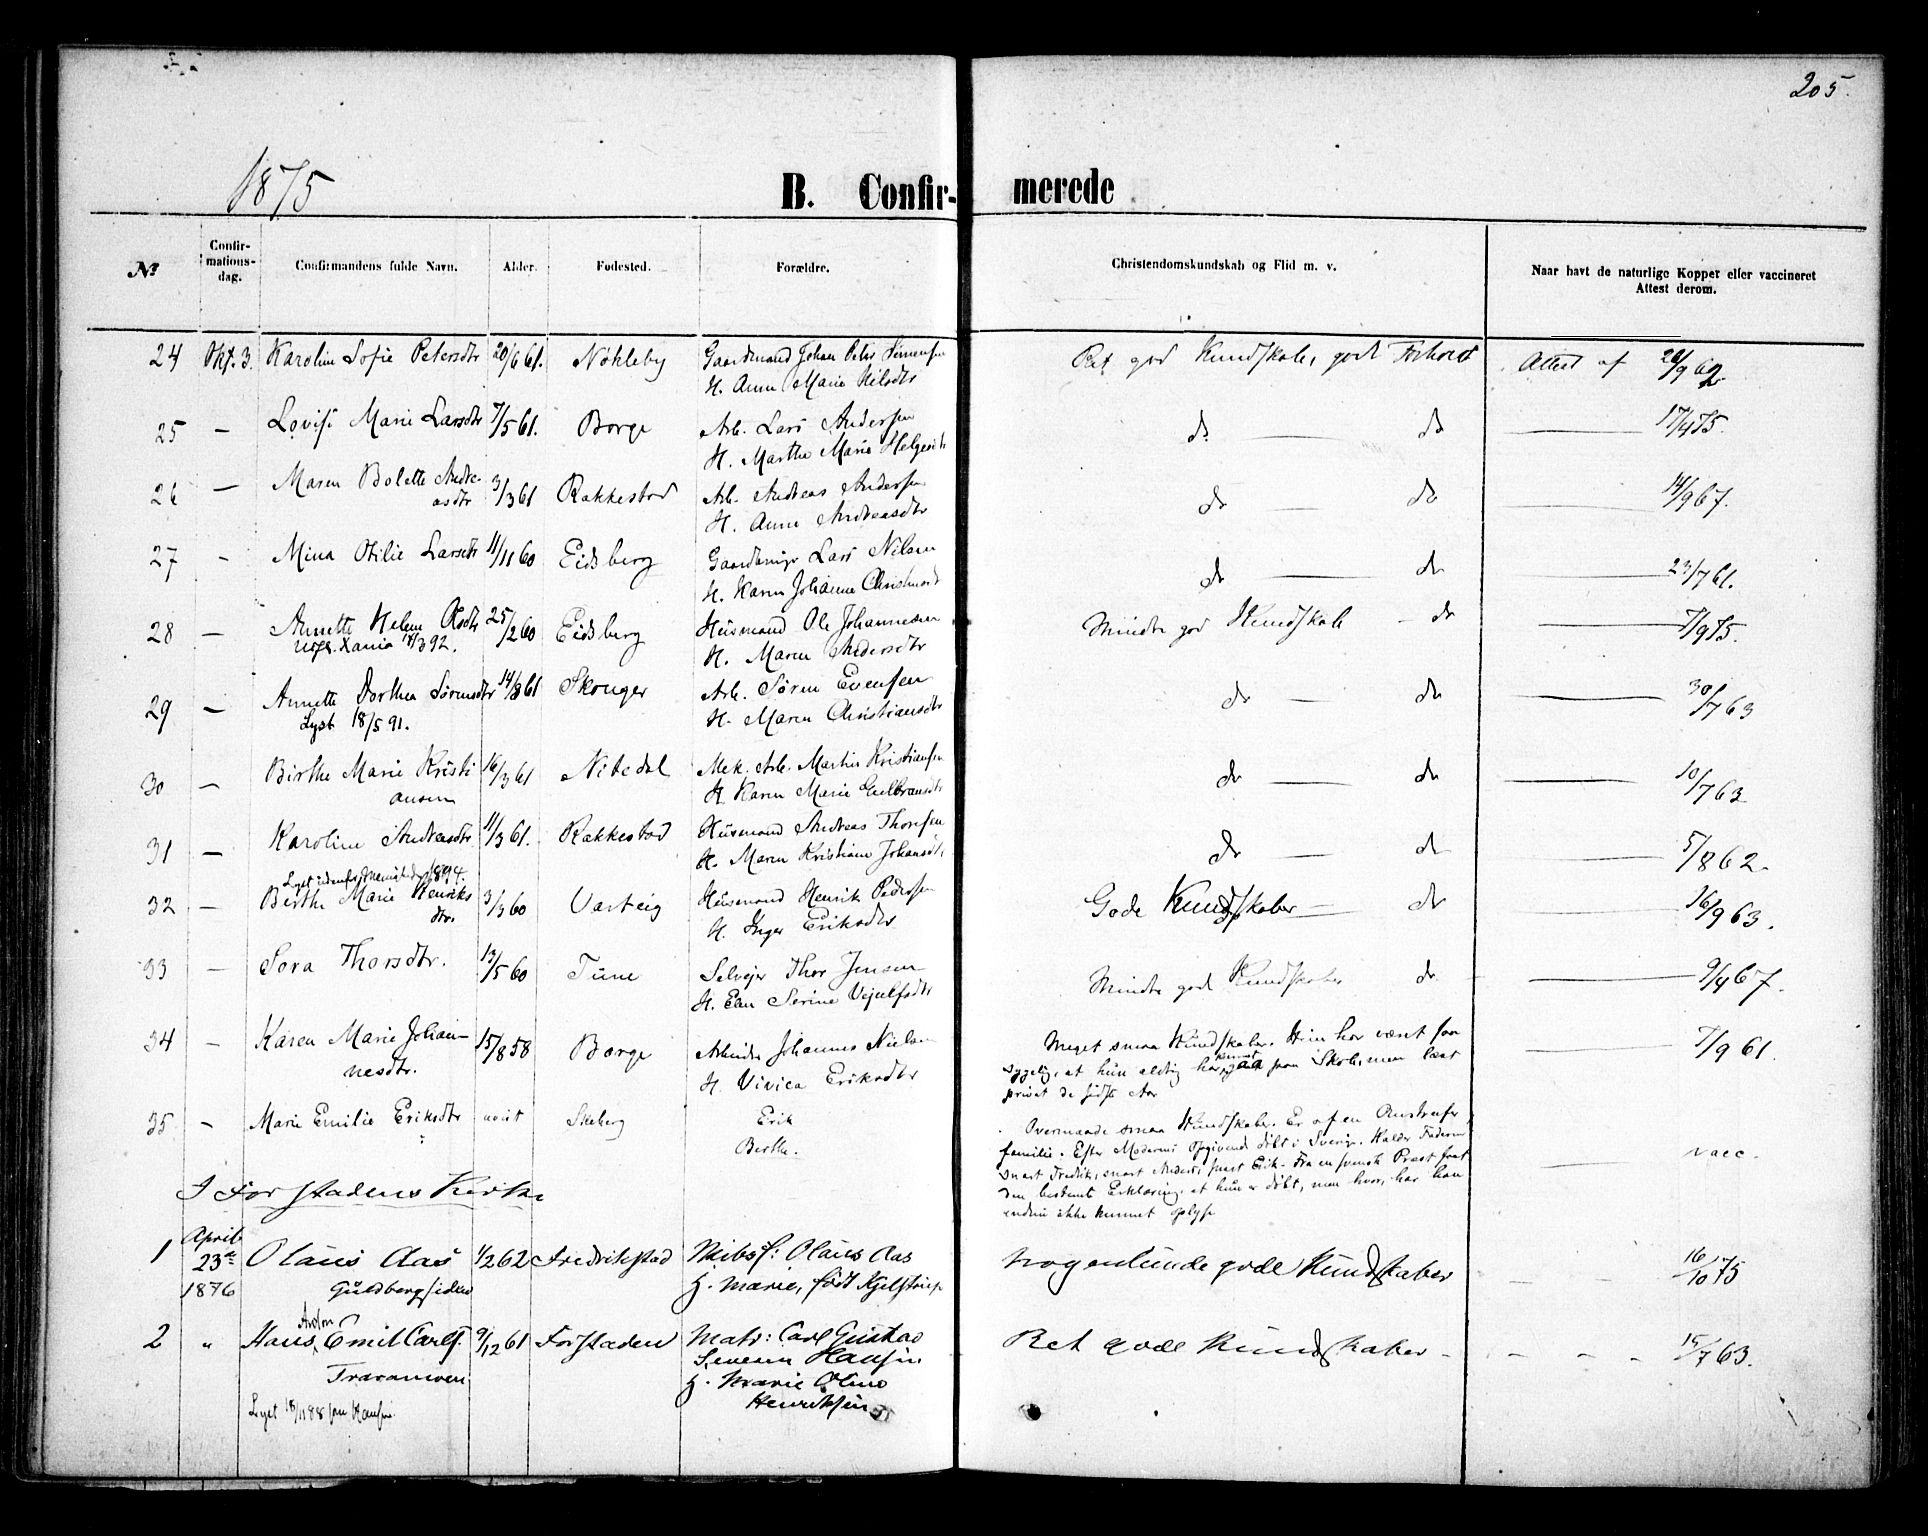 205.
1875
B. Confir- merede
№ Confir-
mations-
dag. Confirmandens fulde Navn. Alder. Fødested. Forældre. Christendomskundskab og Flid m. v. Naar havt de naturlige Kopper eller vaccineret
Attest derom.
24 Okt. 3. Karoline Sofie Petersdtr 20/6 61. Nøkleby Gaardmand Johan Peter Ret god Kundskab, godt Forhold Attest af 20/9 62
H. Anne Marie Nilsdtr
25 — Lovise Marie Larsdtr 7/5 61. Borge Arb. Lars Andersen do — do — 17/4 75.
H. Marthe Marie Helgesdtr
26 — Maren Bolette Andre- 3/3 61 Rakkestad Arb. Andreas Andersen do — do — 14/9 67.
asdtr H. Anne Andreasdtr
27 - Mina Otilie Larsdtr 11/11 60 Eidsberg Lars Nilsen do — do — 23/7 61.
H. Karen Johanne
28 — Annette Helene Olsdtr 25/2 60 Eidsberg Husmand Ole Johannesen Mindre god Kundskab - do — 7/9 75.
Xania 18/3 92. H. Maren Andersdtr
29 — Annette Dorthea Sørensdtr 14/8 61 Skouger Arb. Søren Evensen do — do — 30/7 63
Lyst 18/5 91. H. Maren Christiansdtr
30 — Birthe Marie Kristi 16/3 61 Nitedal Mek. Arb. Martin Kristiansen do — do — 10/7 63
ansen H. Karen Marie Gulbransdtr
31 — Karoline Andreasdtr 11/3 61. Rakkestad Husmand Andreas Thoresen do — do 5/8 62.
H. Maren Kristiane Johansdtr
Lyst 1894.
32 — Birthe Marie Henriks 3/3 60 Varteig Husmand Henrik Pedersen Gode Kundskaber — do — 16/9 63.
dtr. H. Inger Eriksdtr
33 — Sora Thorsdtr. 13/5 60 Tune Selvejer Thor Jensen Mindre god Kundskaber do — 9/9 67.
H. Serine
34 - Karen Marie Johan- 15/8 58 Borge Arbeider Johannes Nielsen Meget smaa Kundskaber. Hun har været saa — 7/9 61.
nesdtr. H. Vivica Eriksdtr sygelig, at hun aldrig har kunnet gaa paa Skole, men læst
privat de sidste Aar
35 - Marie Emilie Eriksdtr uvist Skeberg Erik Overmaade smaa Kundskaber. Er af en
Berthe. familie. Efter Moderens Opgivende døbt i Sverige. Kalder Faderen — vacc.
snart Fredrik, snart Anders, snart Erik - Fra en svensk Prest
den bestemt Erklæring, at hun er døbt, men hvor, har han
endnu ikke kunnet oplyse
I Forstadens Kirke
1 April
23de
1876 Olaus Aas 1/2 62 Fredrikstad Skibsf: Olaus Aas nogenlunde gode Kundskaber — 16/10 75
Guldbergsiden H. Marie, født Kjelstrup
2 „ Hans Anton Emil Carls. 9/12 61 Forstaden Matr: Carl Gustav Ret gode Kundskaber - - - - 15/7 63.
Traraveien Severin Hansen
H. Marie Oline
Henriksen
Lyst 18/11 88